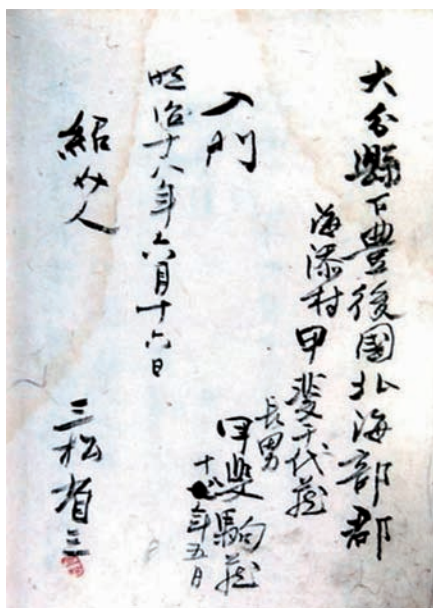 大分縣下豊後國北海部郡
海添村甲斐千代蔵
長男
甲斐駒蔵
十八年五月
入門
明治十八年六月十六日
紹介人
三松省三